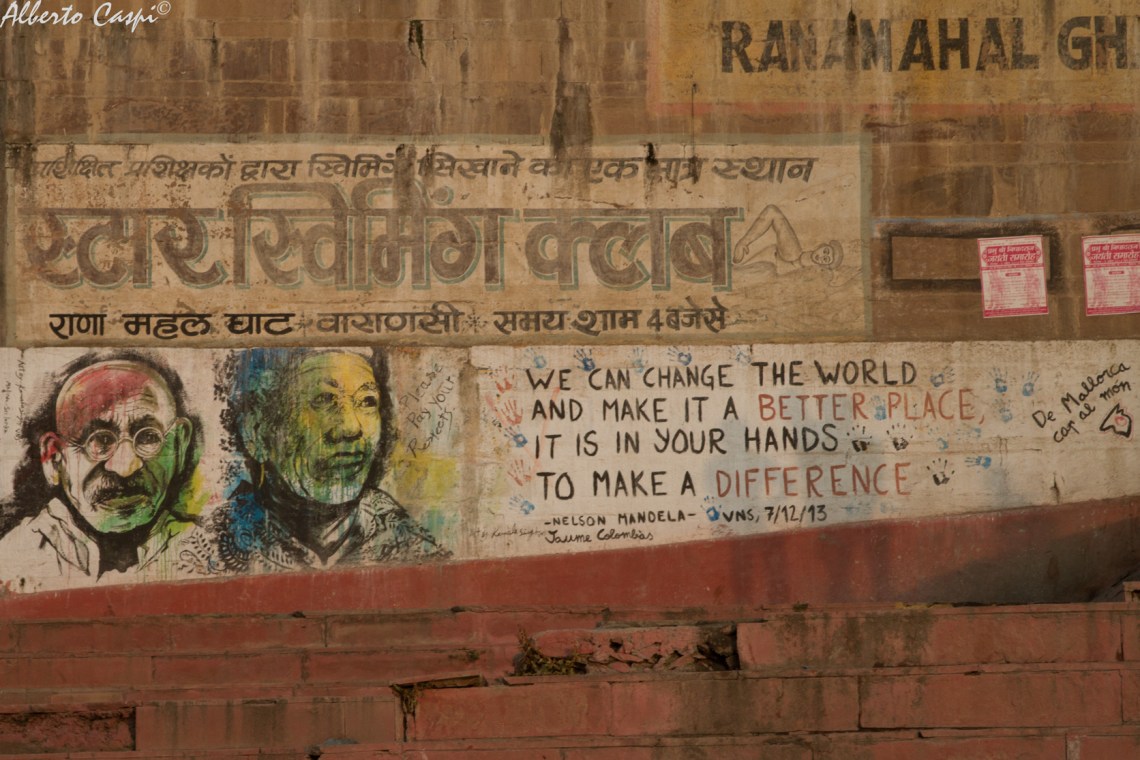 Alberto Caspi©
RANAMAHAL GH
प्रशिक्षित प्रशिक्षकों द्वारा स्विमिंग सिखाने का एक मात्र स्थान
स्टार स्विमिंग क्लब
राणा महल घाट * वाराणसी * समय शाम 4 बजे से
WE CAN CHANGE THE WORLD
AND MAKE IT A BETTER PLACE,
IT IS IN YOUR HANDS
TO MAKE A DIFFERENCE
-NELSON MANDELA- VNS, 7/12/13
Jaume Colombàs
De Mallorca
cap al món
Please
Pay Your
Respects
जयंती समारोह
जयंती समारोह